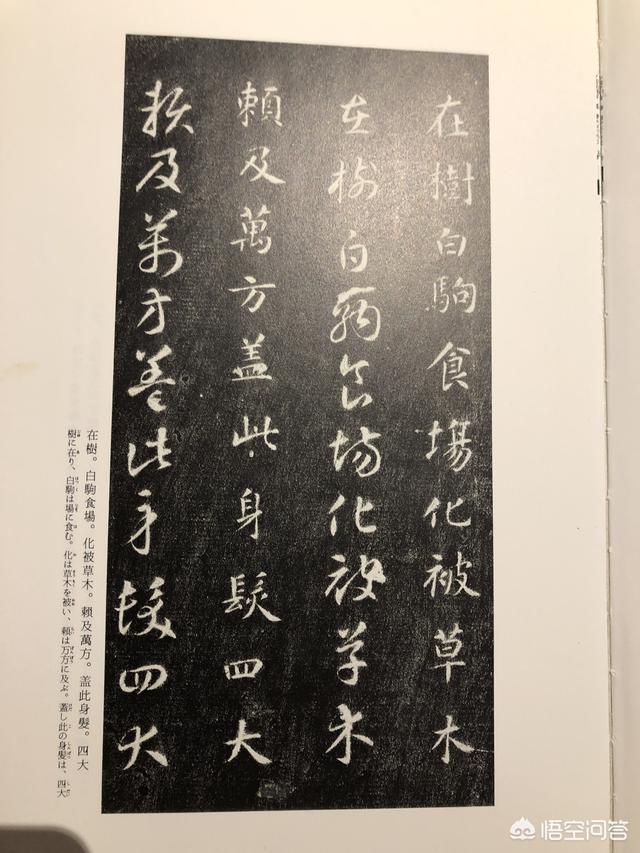 在樹白駒食場化被草木
在樹白駒食場化被草木
賴及萬方盖此身髮四大
賴及萬方盖此身髮四大
在樹。白駒食場。化被草木。賴及萬方。盖此身髮。四大
樹に在り、白駒は場に食む。化は草木を被い、賴は万方に及ぶ。蓋し此の身髮は、四大
悟空问答